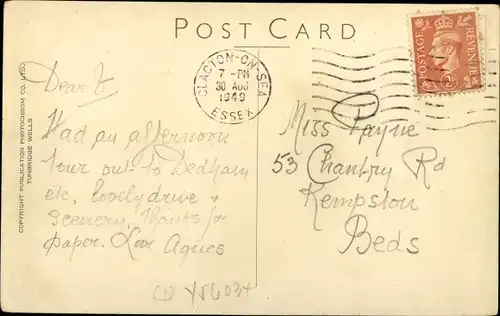 POST CARD
CLACTON-ON-SEA
7-PM
30 AUG
1949
ESSEX
POSTAGE
REVENUE
COPYRIGHT PUBLICATION PHOTOCHROM CO. LTD.
TUNBRIDGE WELLS
Dear
Had an afternoon
tour out to Dedham
etc, lovely drive +
Scenery, thanks for
paper. Love Agnes
Miss Payne
53 Chantry Rd
Kempston
Beds